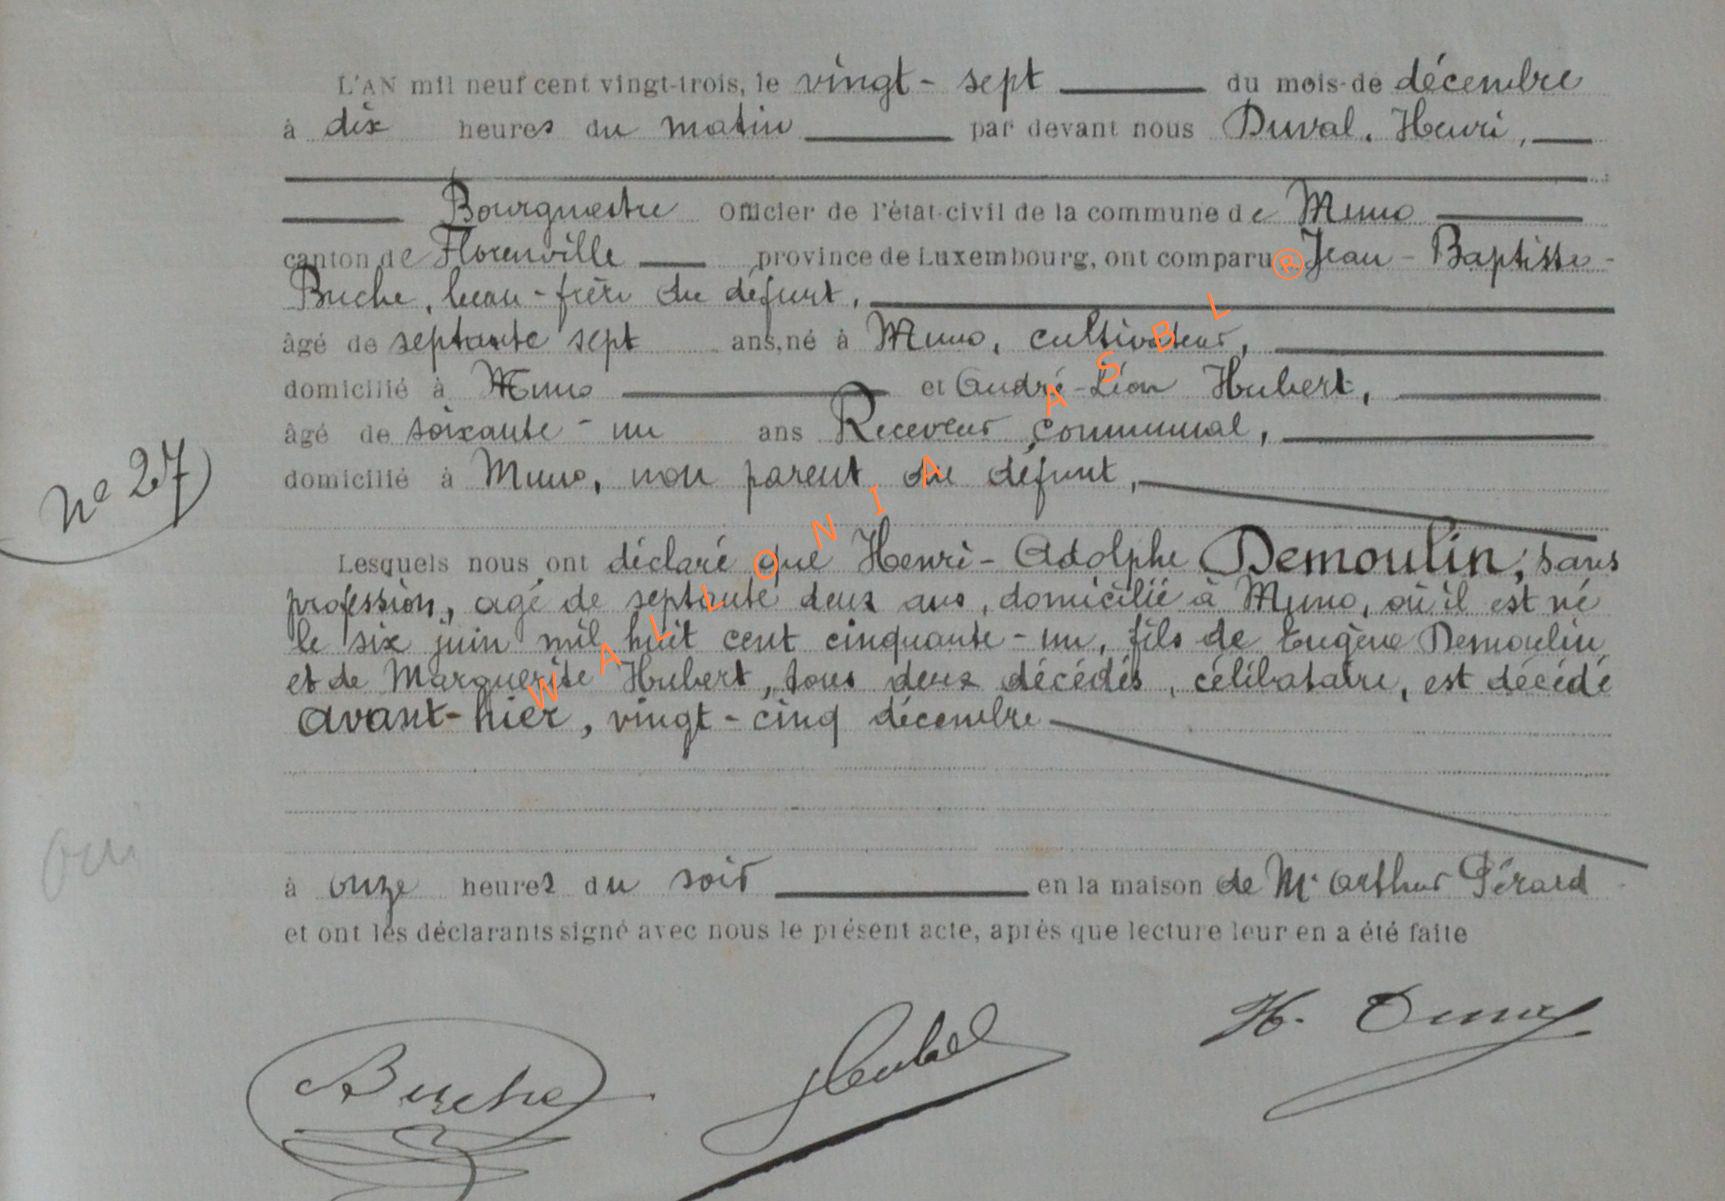 L'AN mil neuf cent vingt-trois, le vingt-sept du mois de décembre
à dix heures du matin par devant nous Duval, Henri,
Bourgmestre Officier de l'état-civil de la commune de Muno
canton de Florenville province de Luxembourg, ont comparu ® Jean-Baptiste-
Buche, beau-frère du défunt,
âgé de septante sept ans, né à Muno, cultivateur,
domicilié à Muno et André-Léon Hubert,
âgé de soixante-un ans Receveur communal,
domicilié à Muno, non parent du défunt,
No 27
Lesquels nous ont déclaré que Henri-Adolphe Demoulin, sans
profession, agé de septante deux ans, domicilié à Muno, où il est né
le six juin mil huit cent cinquante-un, fils de Eugène Demoulin
et de Marguerite Hubert, tous deux décédés, célibataire, est décédé
avant-hier, vingt-cinq décembre
oui
à onze heures du soir en la maison de Mr Arthur Pérard
et ont les déclarants signé avec nous le présent acte, après que lecture leur en a été faite
WALLONIA ASBL
Buche Hubert H. Duval